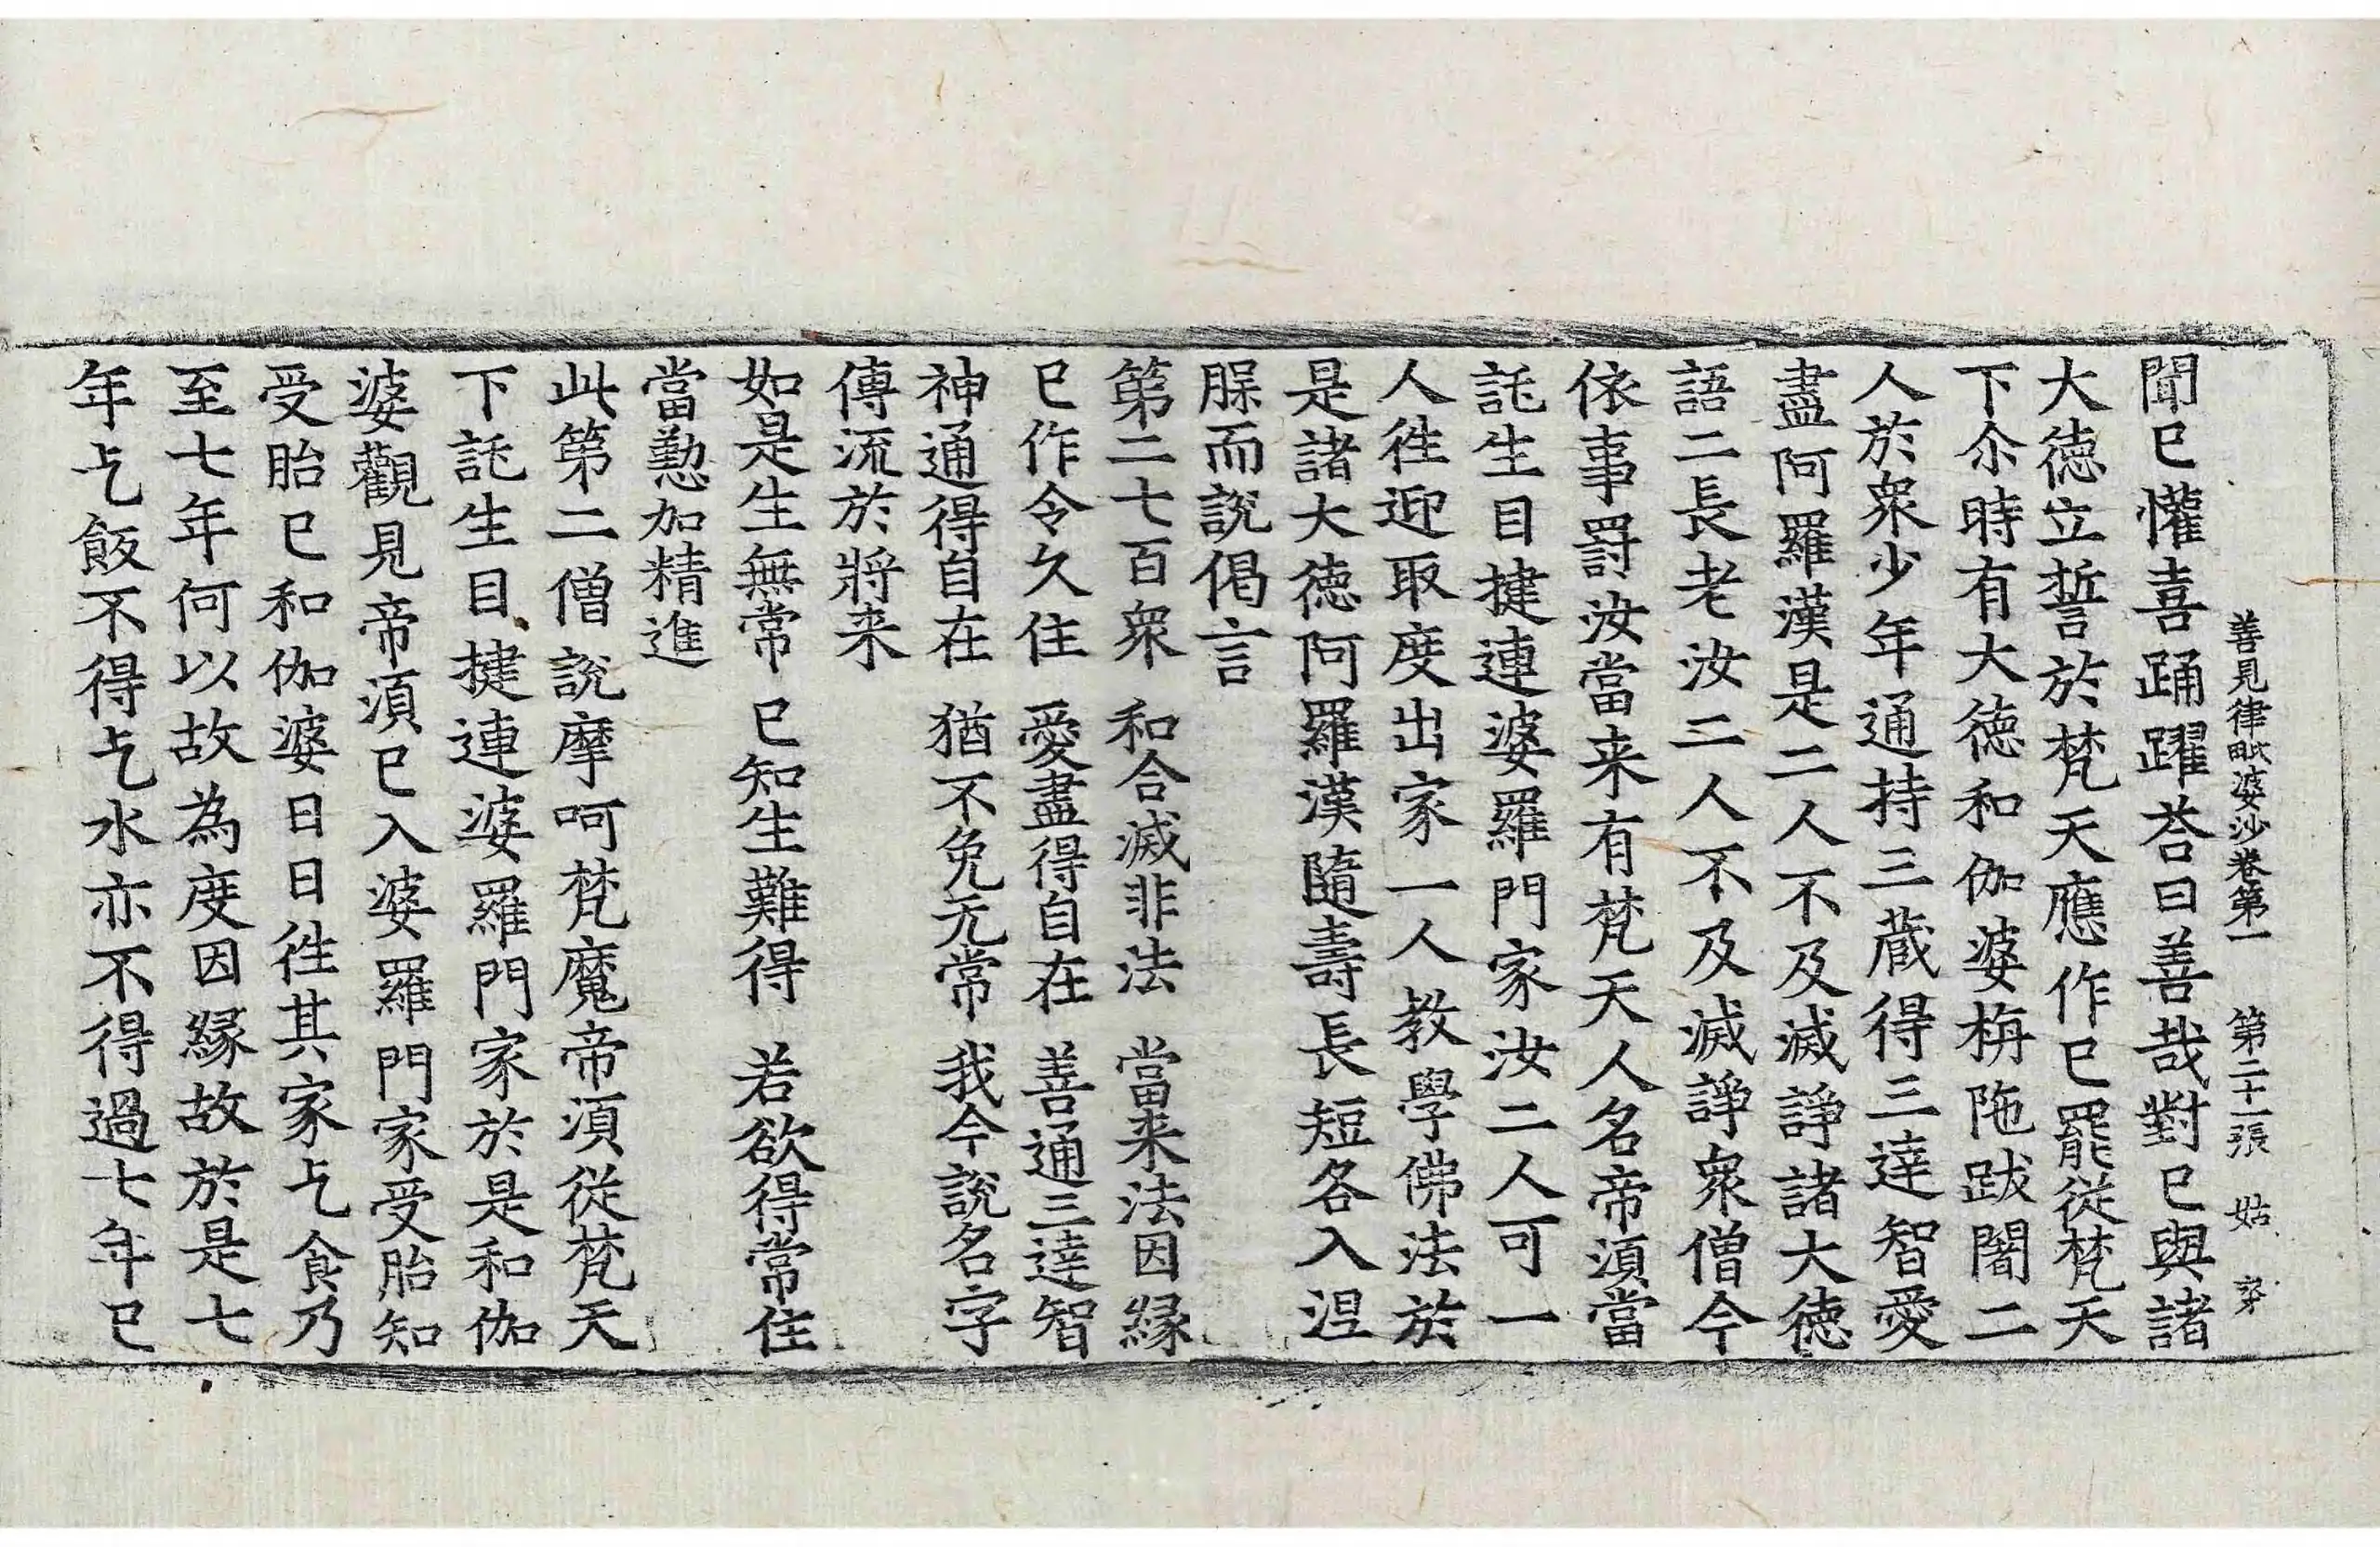 善見律毗婆沙卷第一　第二十一張　姑
聞已懽喜踊躍荅曰善哉對已與諸
大徳立誓於梵天應作已罷從梵天
下尒時有大徳和伽婆栴陁跋闍二
人於衆少年通持三藏得三達智愛
盡阿羅漢是二人不及滅諍諸大徳
語二長老汝二人不及滅諍衆僧今
依事罰汝當来有梵天人名帝湏當
託生目揵連婆羅門家汝二人可一
人徃迎取度出家一人教學佛法於
是諸大徳阿羅漢隨壽長短各入涅
脵而說偈言
第二七百衆　和合滅非法　當来法因縁
已作令久住　愛盡得自在　善通三達智
神通得自在　猶不免无常　我今說名字
傳流於將来
如是生無常　已知生難得　若欲得常住
當懃加精進
此第二僧說摩呵梵魔帝湏從梵天
下託生目揵連婆羅門家於是和伽
婆觀見帝湏已入婆羅門家受胎知
受胎已和伽婆日日徃其家乞食乃
至七年何以故為度因縁故於是七
年乞飯不得乞水亦不得過七年已